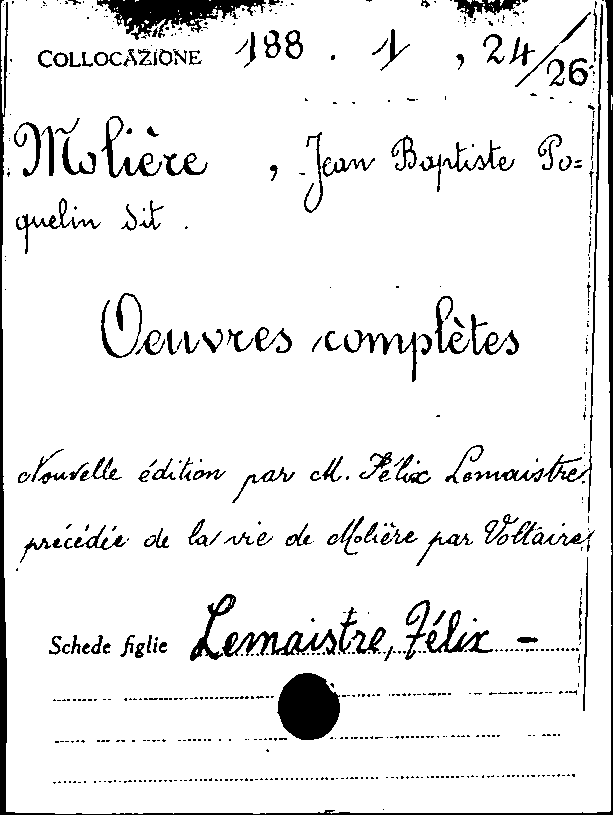 COLLOCAZIONE 188 . 1 , 24/26
Molière , Jean Baptiste Po=
quelin dit .
Oeuvres complètes
Nouvelle édition par M. Félix Lemaistre
précédée de la vie de Molière par Voltaire
Schede figlie Lemaistre, Félix -